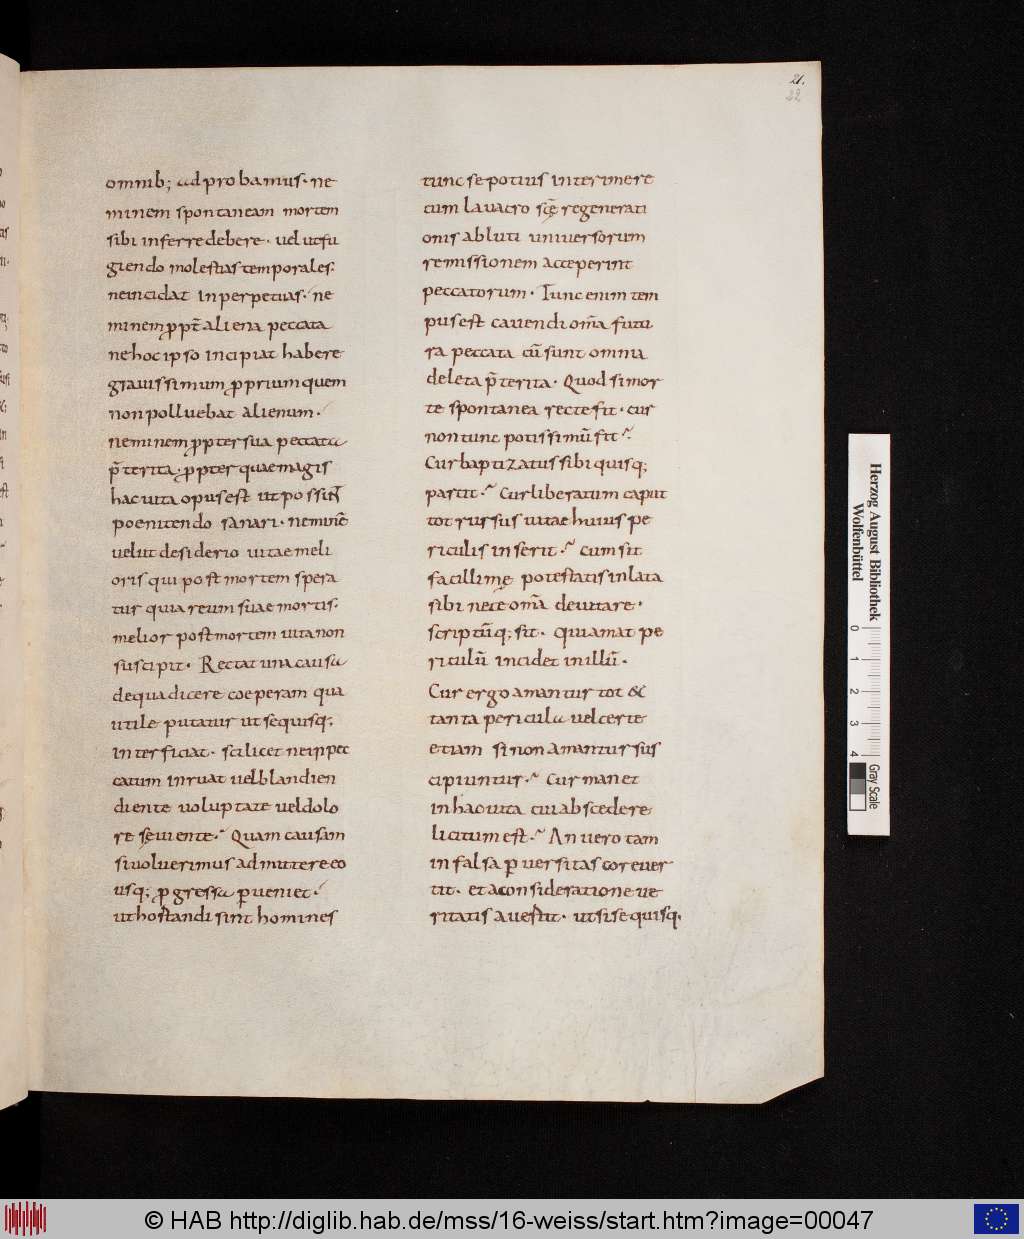 21.
22
omnib; adprobamus· ne
minem spontaneam mortem
sibi inferredebere· uel utfu
giendo molestiastemporales·
neincidat inperpetuas· ne
minemppt̄ aliena peccata
nehocipso incipiat habere
grauissimum proprium quem
nonpolluebat alienum·
neminempptersua peccata
p̄terita· ppter quaemagis
hacuita opusest utpossint
poenitendo sanari· neminē
uelut desiderio uitaemeli
oris quipostmortem spera
tur quiareum suaemortis·
melior postmortem uitanon
suscipit· Rectat unacausa
dequadicere coeperam qua
utile putatur utsequisq;
interficiat· scilicet neinpec
catum inruat uelblandien
diente uoluptate ueldolo
re seuiente· Quam causam
siuoluerimus admittere eo
usq; pgressa pueniet·
uthostandi sint homines
tuncsepotius interimere
cum lauacro scē regenerati
onis abluti uniuersorum
remissionem acceperint
peccatorum· Tunc enim tem
pusest cauendi om̄a futu
ra peccata cū sunt omnia
deleta p̄terita· Quod simor
te spontanea rectefit· cur
nontunc potissimū fit?
Curbaptizatussibiquisq;
partit? Curliberatum caput
tot russus uitaehuius pe
riculis inserit? Cumsit
facillimę potestatisinlata
sibi nece om̄a deuitare·
scriptūq; sit· Quiamat pe
riculū incidet inillū·
Cur ergo amantur tot &
tanta pericula uelcerte
etiam sinonamantursus
cipiuntur? Cur manet
inhacuita cuiabscedere
licitumest? An uero tam
infalsa puersitas coreuer
tit· etaconsiderationeue
ritatis auestit· utsisequisq·
Herzog August Bibliothek
Wolfenbüttel
0 1 2 3 4
Gray Scale
© HAB http://diglib.hab.de/mss/16-weiss/start.htm?image=00047